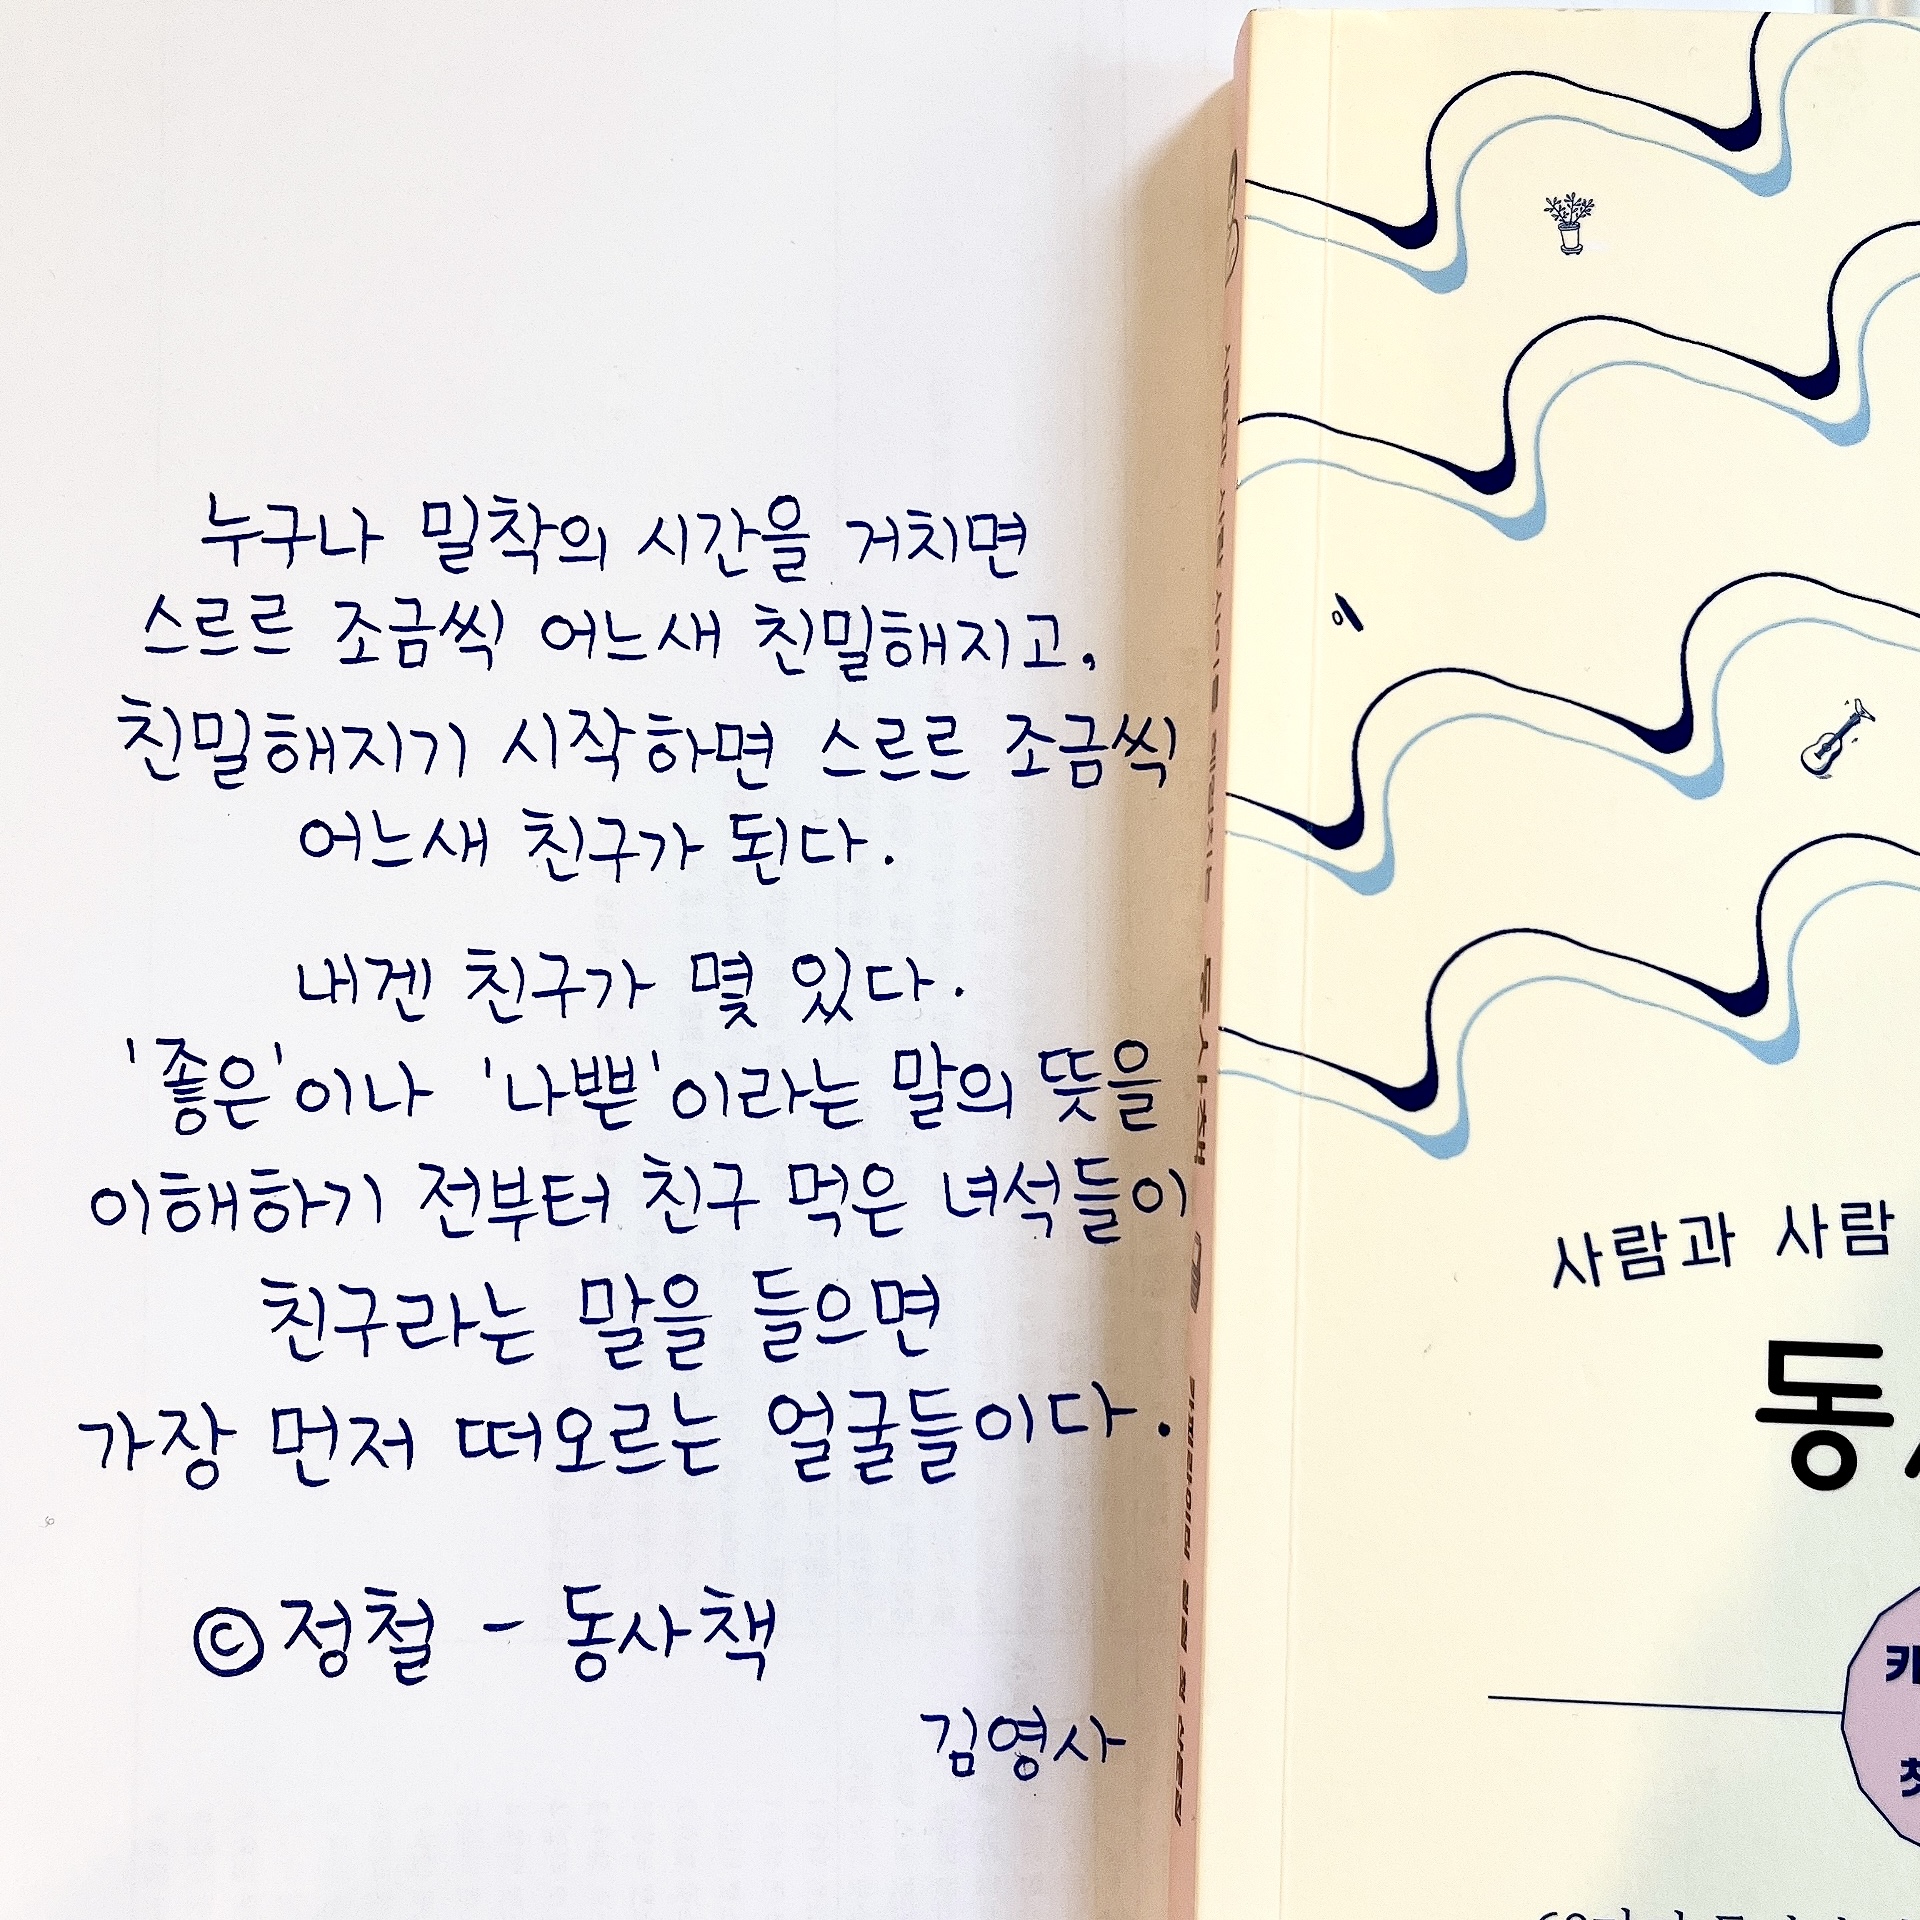 누구나 밀착의 시간을 거치면
스르르 조금씩 어느새 친밀해지고,
친밀해지기 시작하면 스르르 조금씩
어느새 친구가 된다.
내겐 친구가 몇 있다.
'좋은'이나 '나쁜'이라는 말의 뜻을
이해하기 전부터 친구 먹은 녀석들이
친구라는 말을 들으면
가장 먼저 떠오르는 얼굴들이다.
©정철 - 동사책
김영사
사람과 사람
동